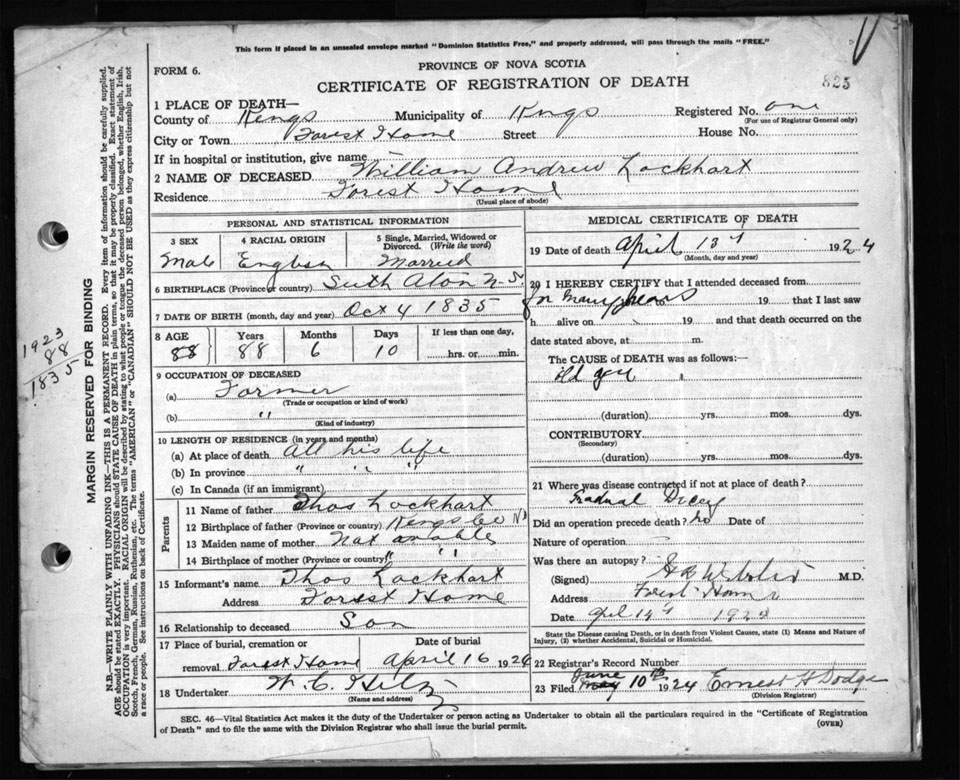 This form if placed in an unsealed envelope marked "Dominion Statistics Free," and property addressed, will pass through the mails "FREE."
PROVINCE OF NOVA SCOTIA
FORM 6.
CERTIFICATE OF REGISTRATION OF DEATH
825
1 PLACE OF DEATH—
County of Kings Municipality of Kings Registered No. one
(For use of Registrar General only)
City or Town Forest Home Street House No.
If in hospital or institution, give name
2 NAME OF DECEASED William Andrew Lockhart
Residence Forest Home
(Usual place of abode)
PERSONAL AND STATISTICAL INFORMATION
3 SEX 4 RACIAL ORIGIN 5 Single, Married, Widowed or Divorced. (Write the word)
Male English Married
6 BIRTHPLACE (Province or country) N.S.
7 DATE OF BIRTH (month, day and year) Oct 4 1835
8 AGE Years Months Days If less than one day,
88 88 6 10 hrs. or min.
9 OCCUPATION OF DECEASED
(a) Farmer
(Trade or occupation or kind of work)
(b) "
(Kind of industry)
10 LENGTH OF RESIDENCE (in years and months)
(a) At place of death all his life
(b) In province " " "
(c) In Canada (if an immigrant)
Parents
11 Name of father Thos Lockhart
12 Birthplace of father (Province or country) Kings Co NS
13 Maiden name of mother Not
14 Birthplace of mother (Province or country) " "
15 Informant's name Thos Lockhart
Address Forest Home
16 Relationship to deceased Son
17 Place of burial, cremation or removal Forest Home
Date of burial April 16 1924
18 Undertaker W. C. Hiltz
(Name and address)
MEDICAL CERTIFICATE OF DEATH
19 Date of death April 13 1924
(Month, day and year)
20 I HEREBY CERTIFY that I attended deceased from
for many years 19 that I last saw
h alive on 19 and that death occurred on
date stated above, at m.
The CAUSE of DEATH was as follows:
old age
(duration) yrs. mos. dys.
CONTRIBUTORY
(Secondary)
(duration) yrs. mos. dys.
21 Where was disease contracted if not at place of death?
Gradual Decay
Did an operation precede death? no Date of
Nature of operation
Was there an autopsy?
(Signed) Webster M.D.
Address Forest Home
Date 14 192
State the Disease causing Death, or in death from Violent Causes, state (1) Means and Nature of Injury, (2) whether Accidental, Suicidal or Homicidal.
22 Registrar's Record Number
23 Filed June May 10th 1924 Ernest H Dodge
(Division Registrar)
SEC. 46—Vital Statistics Act makes it the duty of the Undertaker or person acting as Undertaker to obtain all the particulars required in the "Certificate of Registration of Death" and to file the same with the Division Registrar who shall issue the burial permit.
(OVER)
1923
88
1835
MARGIN RESERVED FOR BINDING
N.B.—WRITE PLAINLY WITH UNFADING INK—THIS IS A PERMANENT RECORD. Every item of information should be carefully supplied.
AGE should be stated EXACTLY. PHYSICIANS should STATE CAUSE OF DEATH in plain terms, so that it may be properly classified. Exact statement of
OCCUPATION is very important. RACIAL ORIGIN will be described by stating to what people or tongue the deceased person belonged, whether English, Irish,
Scotch, French, German, Russian, Ruthenian, etc. The terms "AMERICAN" or "CANADIAN" SHOULD NOT BE USED as they express citizenship but not
a race or people. See instructions on back of Certificate.